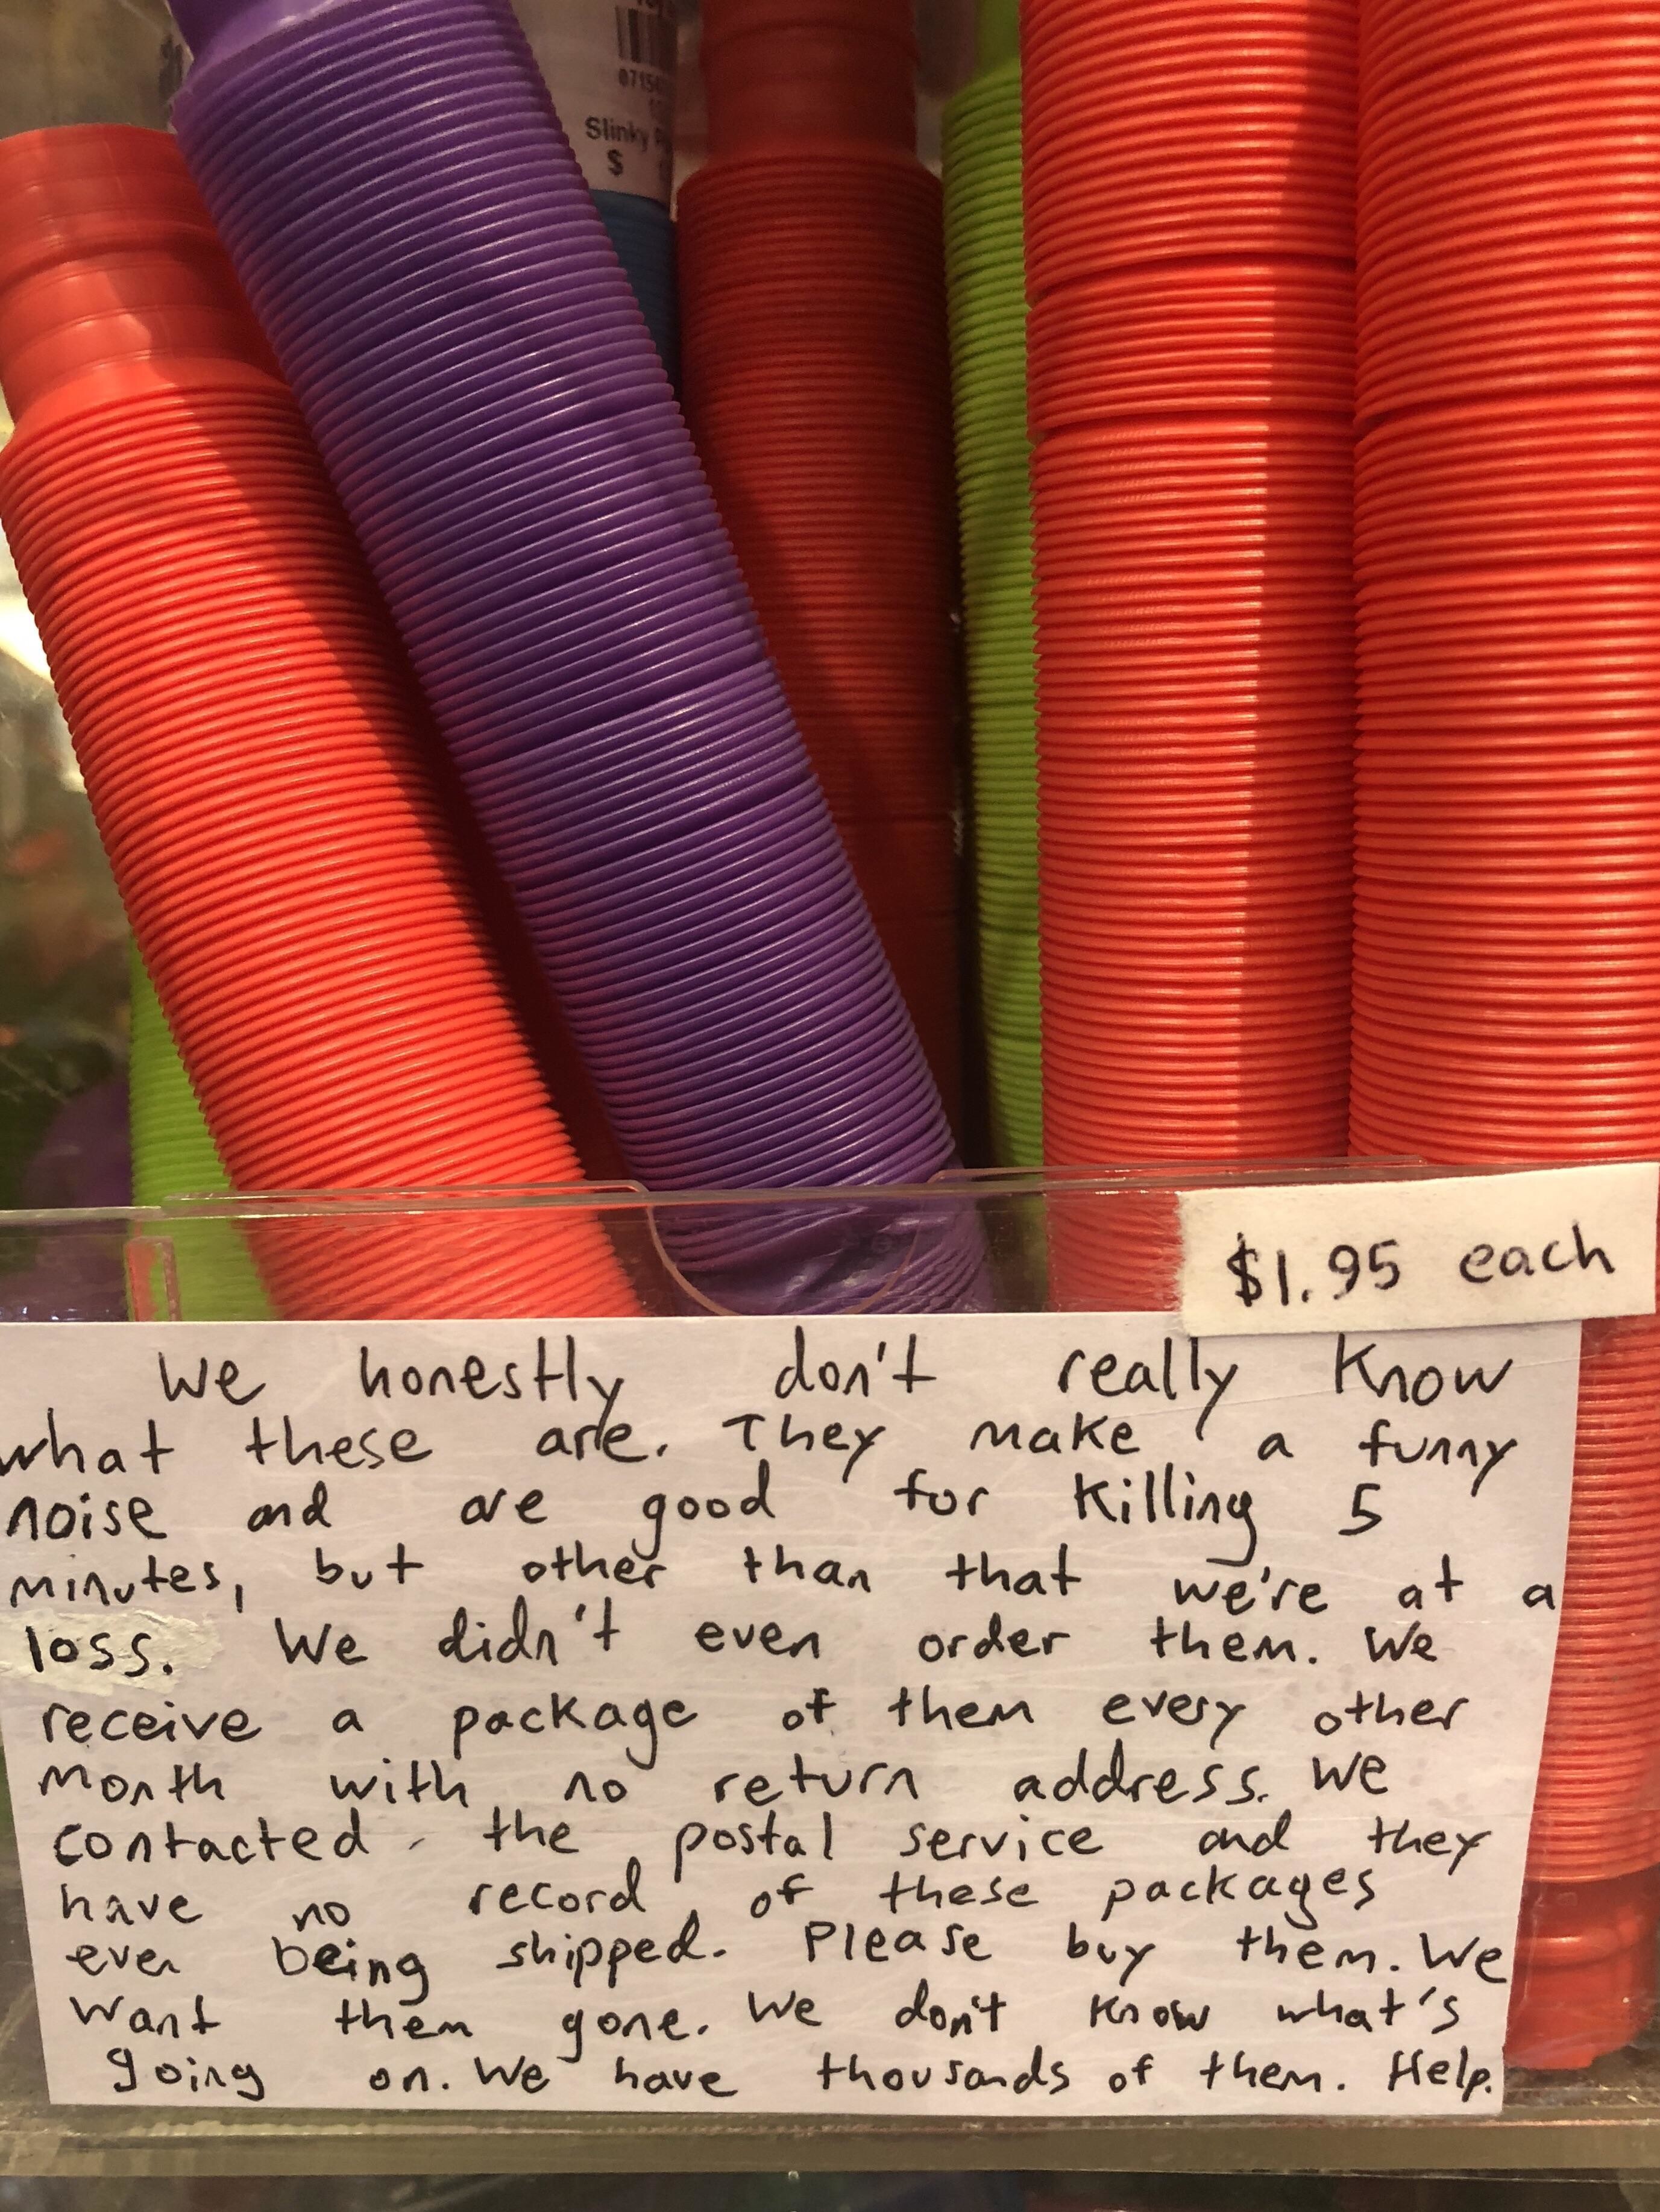 0715
Slinky
$
$1.95 each
We honestly don't really know
what these are. They make a funny
noise and are good for killing 5
minutes, but other than that we're at a
loss. We didn't even order them. We
receive a package of them every other
month with no return address. We
contacted the postal service and they
have no record of these packages
ever being shipped. Please buy them. We
want them gone. We don't know what's
going on. We have thousands of them. Help.